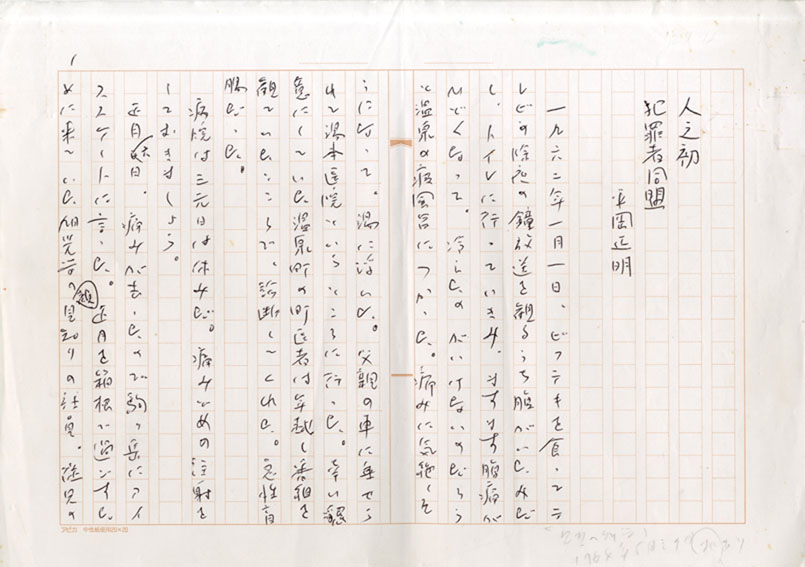 人之初
犯罪者同盟
平岡正明
一九六二年一月一日、ビフテキを食ってテ
レビの除夜の鐘放送を観るうち腹がいたみだ
し、トイレに行っていきみ、ますます腹痛が
ひどくなって。冷えたのがいけないのだろう
と温泉の疲風呂につかった。痛みに気絶しそ
うになって。湯に沿った。父親の車に乗せら
れて湯本医院というところに行った。幸い懇
意にしていた温泉町の町医者は年越し番組を
観ているところで、診断してくれた。急性盲
腸だった。
病院は三元日は休みだ。痛みどめの注射を
しておきましょう。
正月 日。痛みが去ったので駒ヶ岳にアイ
ススケートに言った。正月を箱根で過ごすた
めに来ていた 顔見知りの社員。 の
アピカ 20×20